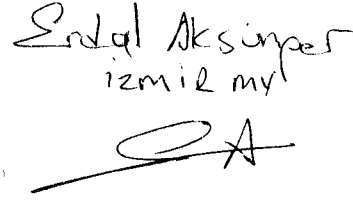 Erdal Aksünger
İZMİR MV